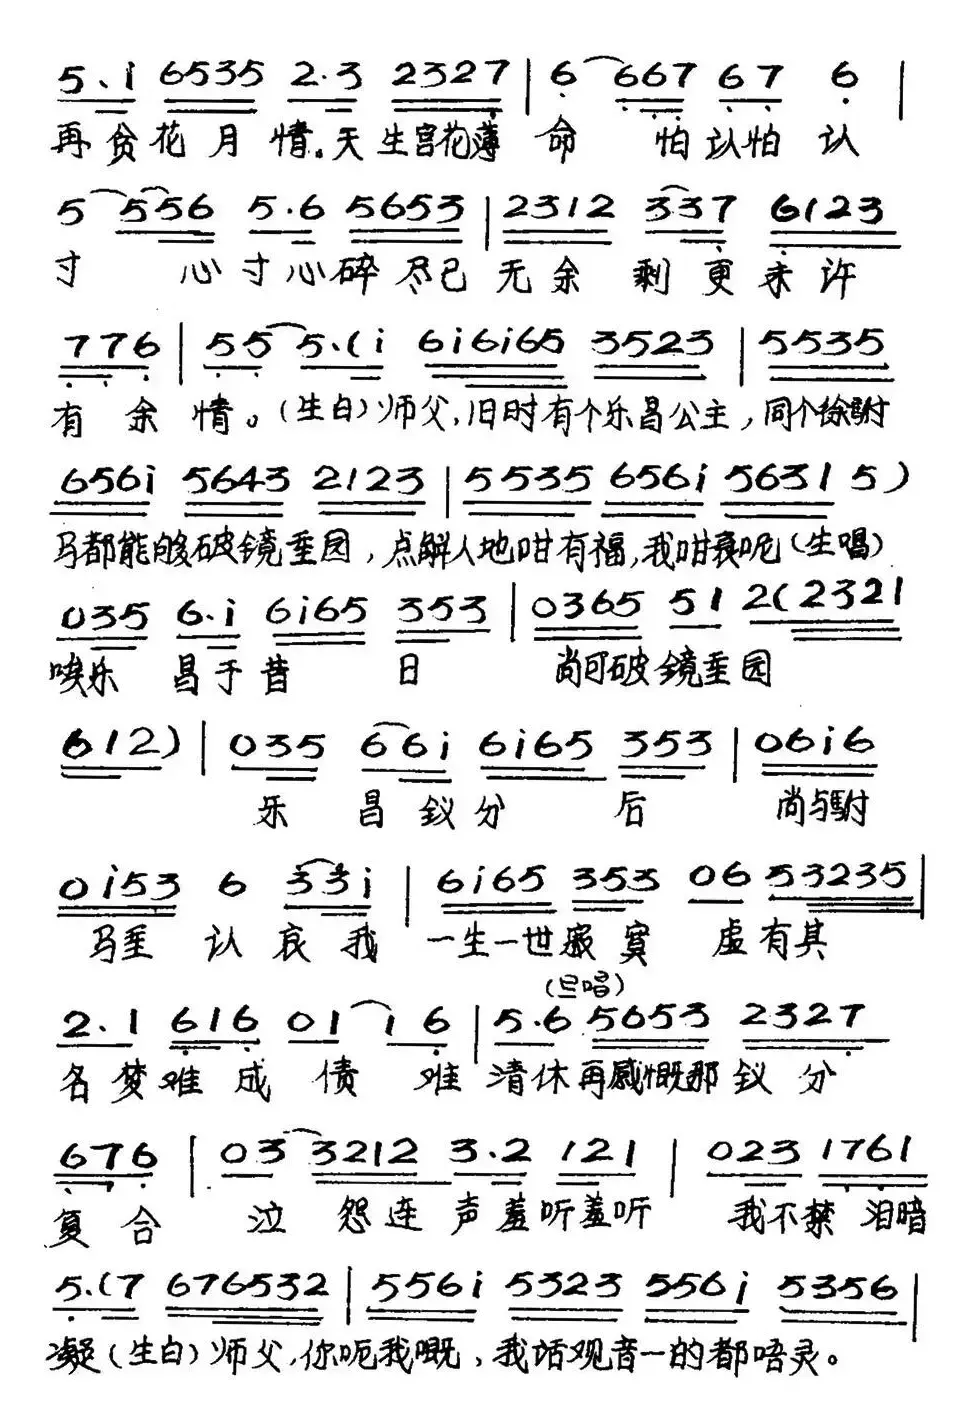 5.i 6535 2.3 2327 | 6 667 67 6 |
再贪花月情。天生宫花薄命 怕认怕认
5 556 5.6 5653 | 2312 337 6123
寸 心寸心碎尽已无余剩更未许
776 | 55 5.(i 6i6i65 3523 | 5535
有余情。(生白)师父,旧时有个乐昌公主,同个徐駙
656i 5643 2123 | 5535 656i 5631 5)
马都能够破镜重园,点解人地咁有福,我咁衰呢(生唱)
035 6.i 6i65 353 | 0365 51 2(2321
唉乐昌于昔日 尚可破镜重园
612) | 035 66i 6i65 353 | 06i6
乐昌钗分后 尚与駙
0i53 6 33i | 6i65 353 06 53235 |
马重认哀我一生一世寂寞虚有其
(旦唱)
2.1 616 01 16 | 5.6 5653 2327
名梦难成债难清休再感慨那钗分
676 | 03 3212 3.2 121 | 023 1761
复合 泣怨连声羞听羞听 我不禁泪暗
5.(7 676532 | 556i 5323 556i 5356 |
凝(生白)师父,你呃我嘅,我话观音一的都唔灵。